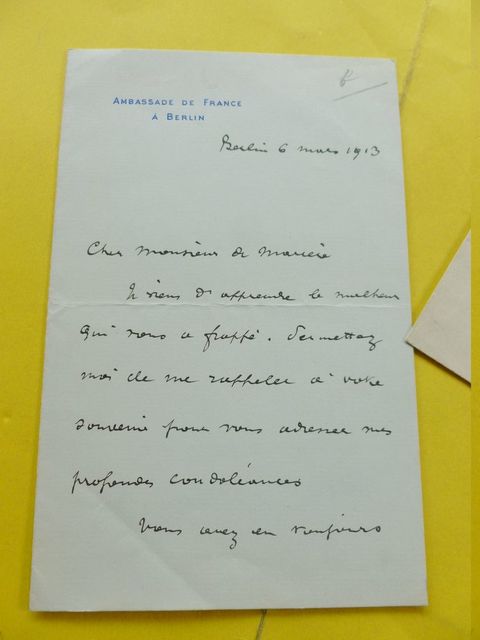 AMBASSADE DE FRANCE
À BERLIN
Berlin 6 mars 1913
Cher Monsieur de
Je viens d'apprendre le malheur
qui vous a frappé. Permettez
moi de me rappeler à votre
souvenir pour vous adresser mes
profondes condoléances
Vous avez eu toujours